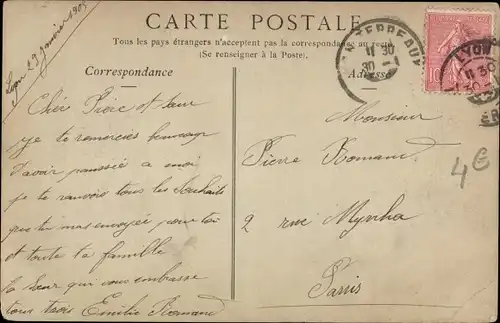 Lyon 29 Janvier 1905
CARTE POSTALE
Tous les pays étrangers n'acceptent pas la correspondance au recto
(Se renseigner à la Poste).
Correspondance
Adresse
11 30
30 -1
LYON
11 30
10
Cher Pière et
je te remercies beaucoup
d'avoir panssée a moi
je te ranvois tous les Souhaits
que tu mas envoyée pour toi
et toute ta famille
ta Sœur qui vous embrasse
tous trois Emilie Romand
Monsieur
Pierre Romand
2 rue Myrrha
Paris
4€